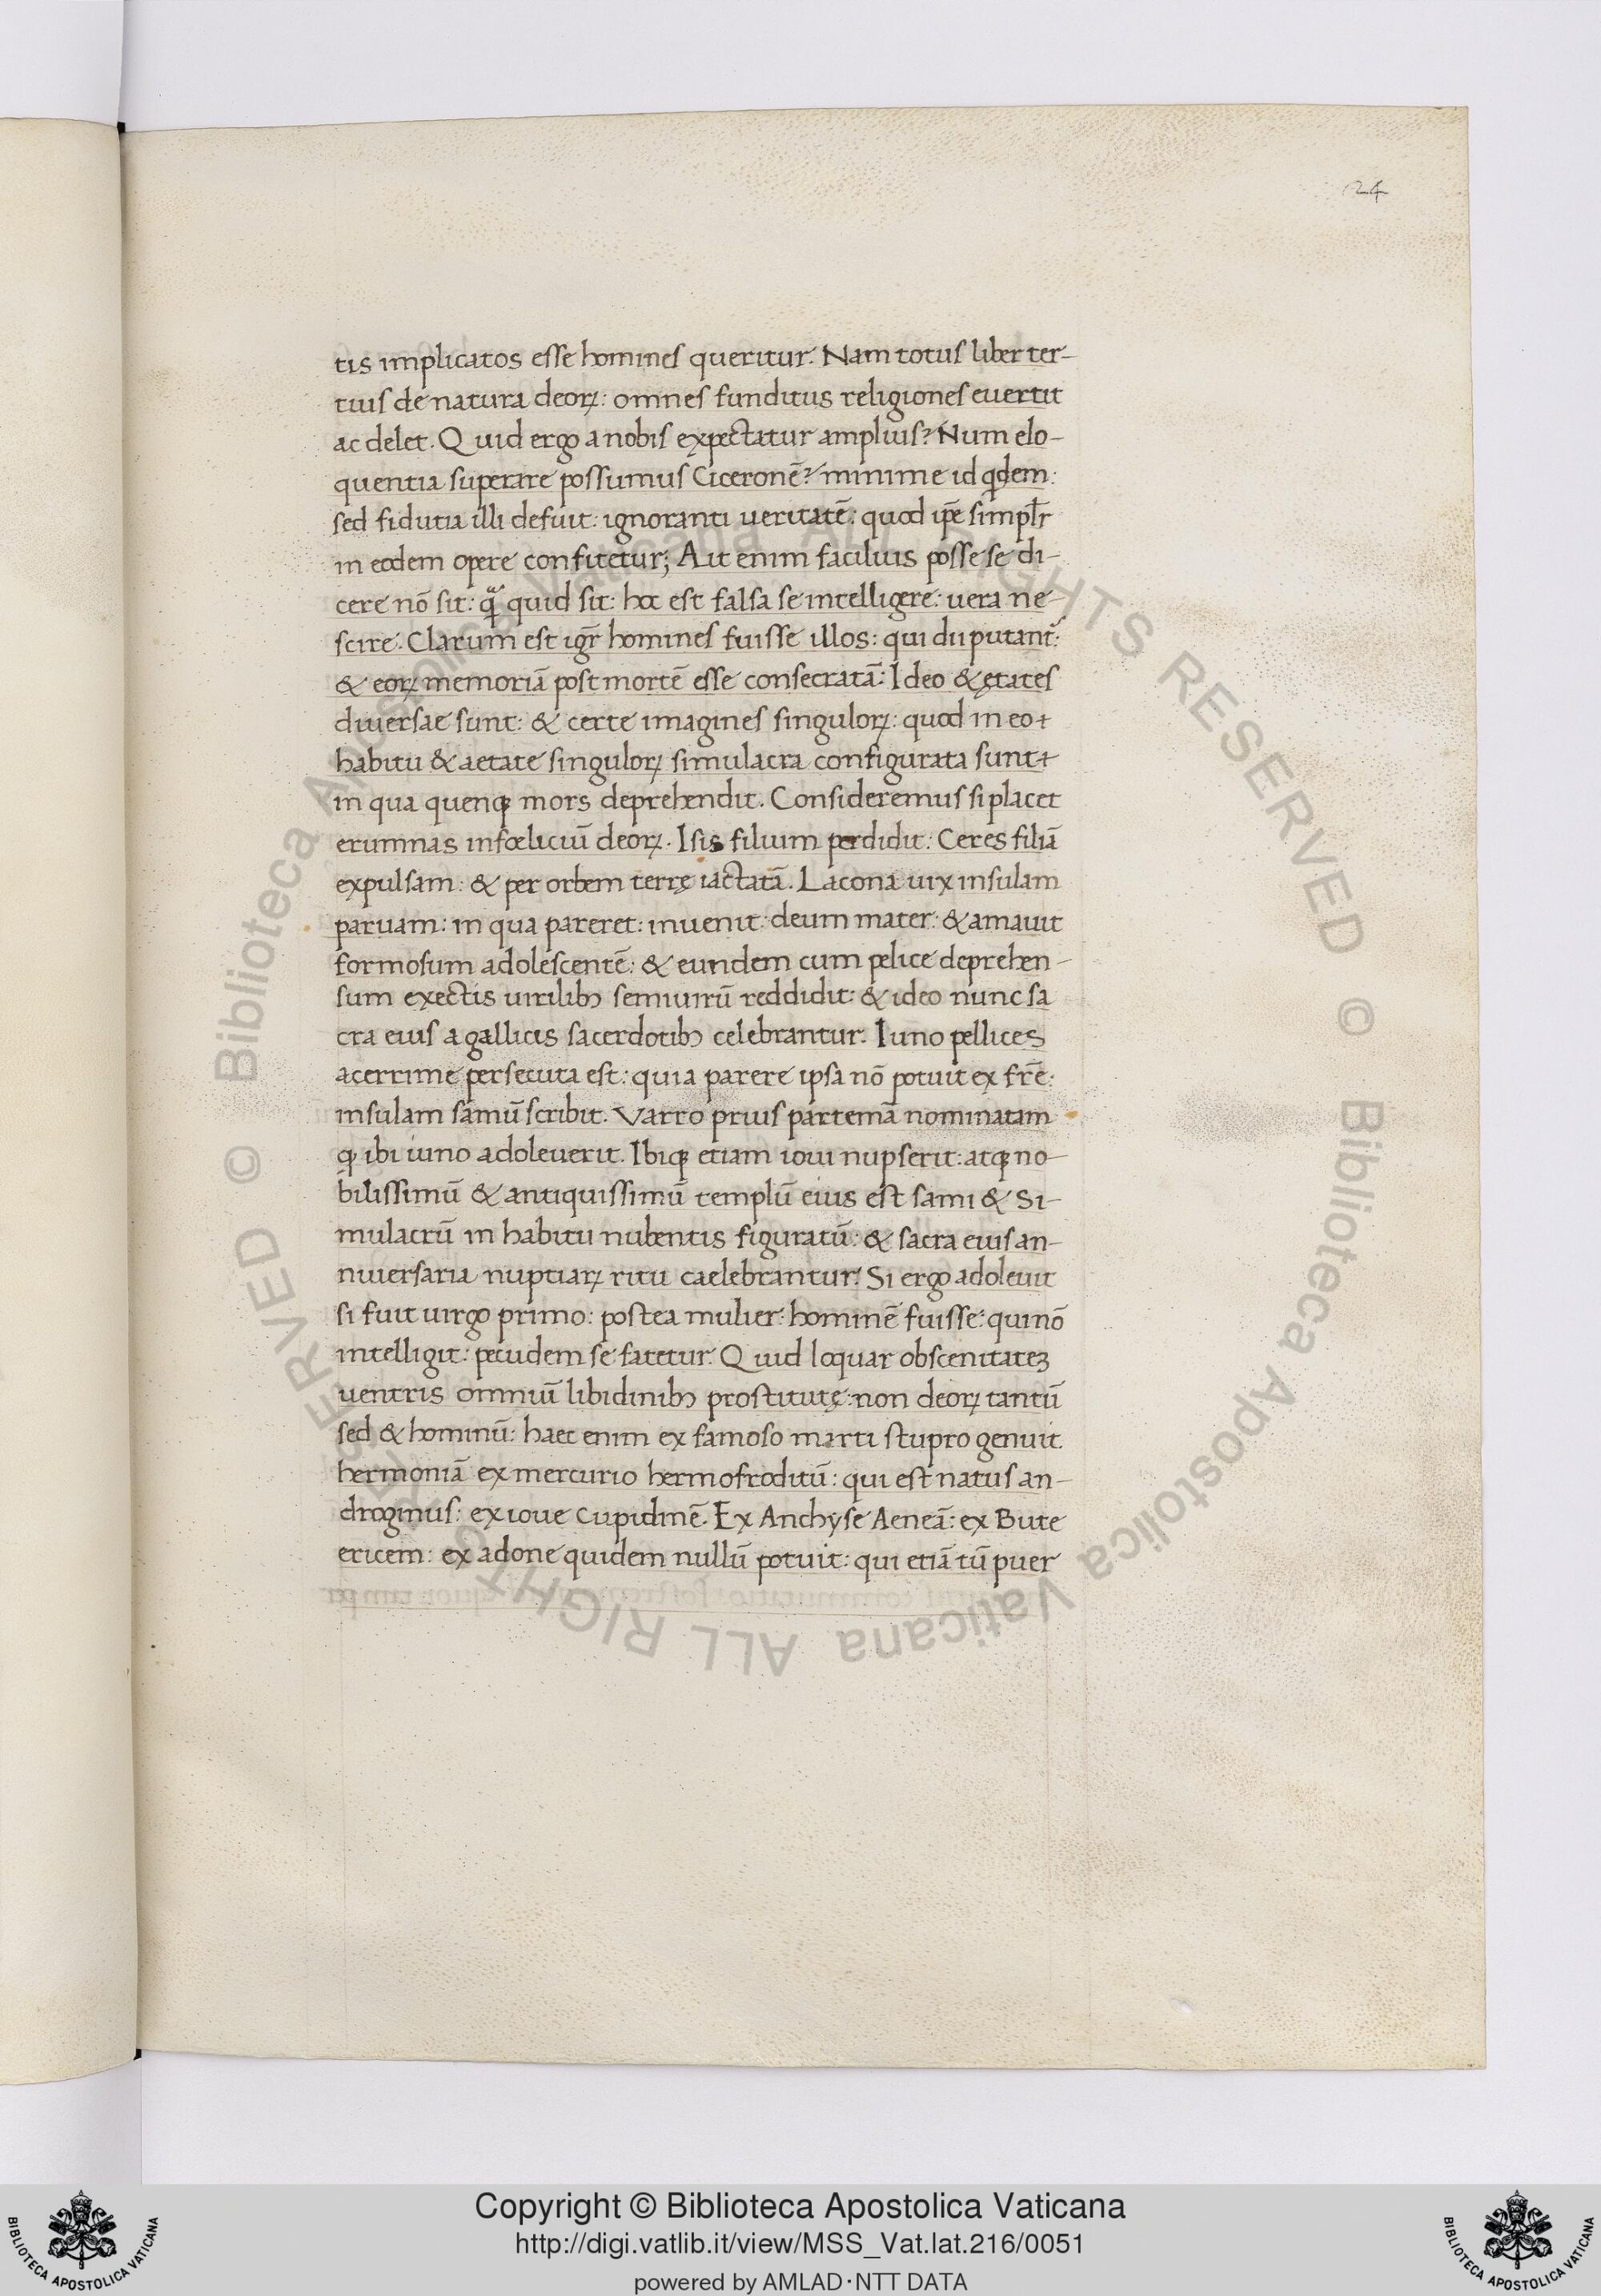 tis implicatos esse homines queritur. Nam totus liber ter-
tius de natura deoꝝ: omnes funditus religiones euertit
ac delet. Quid ergo a nobis expectatur amplius? Num elo-
quentia superare possumus Ciceronē? minime id qdem:
sed fidutia illi defuit: ignoranti ueritatē: quod ip̄e simpl̄r
in eodem opere confitetur; Ait enim facilius posse se di-
cere nō sit: qͣ quid sit: hoc est falsa se intelligere: uera ne-
scire. Clarum est igr̄ homines fuisse illos: qui dii putant̄:
& eoꝝ memoriā post mortē esse consecratā: Ideo & ętates
diuersae sunt: & certe imagines singuloꝝ: quod in eo+
habitu & aetate singuloꝝ simulacra configurata sunt+
in qua quenqꝫ mors deprehendit. Consideremus si placet
erumnas infœliciū deoꝝ. Isis filium perdidit: Ceres filiā
expulsam: & per orbem terrę iactatā. Lacona uix insulam
paruam: in qua pareret: inuenit: deum mater: & amauit
formosum adolescentē: & eundem cum pelice deprehen-
sum exectis uirilibꝫ semiuirū reddidit: & ideo nunc sa
cra eius a gallicis sacerdotibꝫ celebrantur. Iuno pellices
acerrime persecuta est: quia parere ipsa nō potuit ex fr̄e:
insulam samū scribit. Varro prius partemā nominatam
ꝙ ibi iuno adoleuerit. Ibiqꝫ etiam ioui nupserit: atqꝫ no-
bilissimū & antiquissimū templū eius est sami & Si-
mulacrū in habitu nubentis figuratū: & sacra eius an-
niuersaria nuptiaꝝ ritu caelebrantur. Si ergo adoleuit
si fuit uirgo primo: postea mulier: hominē fuisse: qui nō
intelligit: pecudem se fatetur. Quid loquar obscenitateꝫ
uentris omniū libidinibꝫ prostitutę: non deoꝝ tantū
sed & hominū: haec enim ex famoso marti stupro genuit.
hermoniā ex mercurio hermofroditū: qui est natus an-
droginus: ex ioue Cupidinē. Ex Anchyse Aeneā: ex Bute
ericem: ex adone quidem nullū potuit: qui etiā tū puer
© Biblioteca Apostolica Vaticana ALL RIGHTS RESERVED © Biblioteca Apostolica Vaticana ALL RIGHTS RESERVED
Copyright © Biblioteca Apostolica Vaticana
http://digi.vatlib.it/view/MSS_Vat.lat.216/0051
powered by AMLAD·NTT DATA
BIBLIOTECA APOSTOLICA VATICANA
BIBLIOTECA APOSTOLICA VATICANA